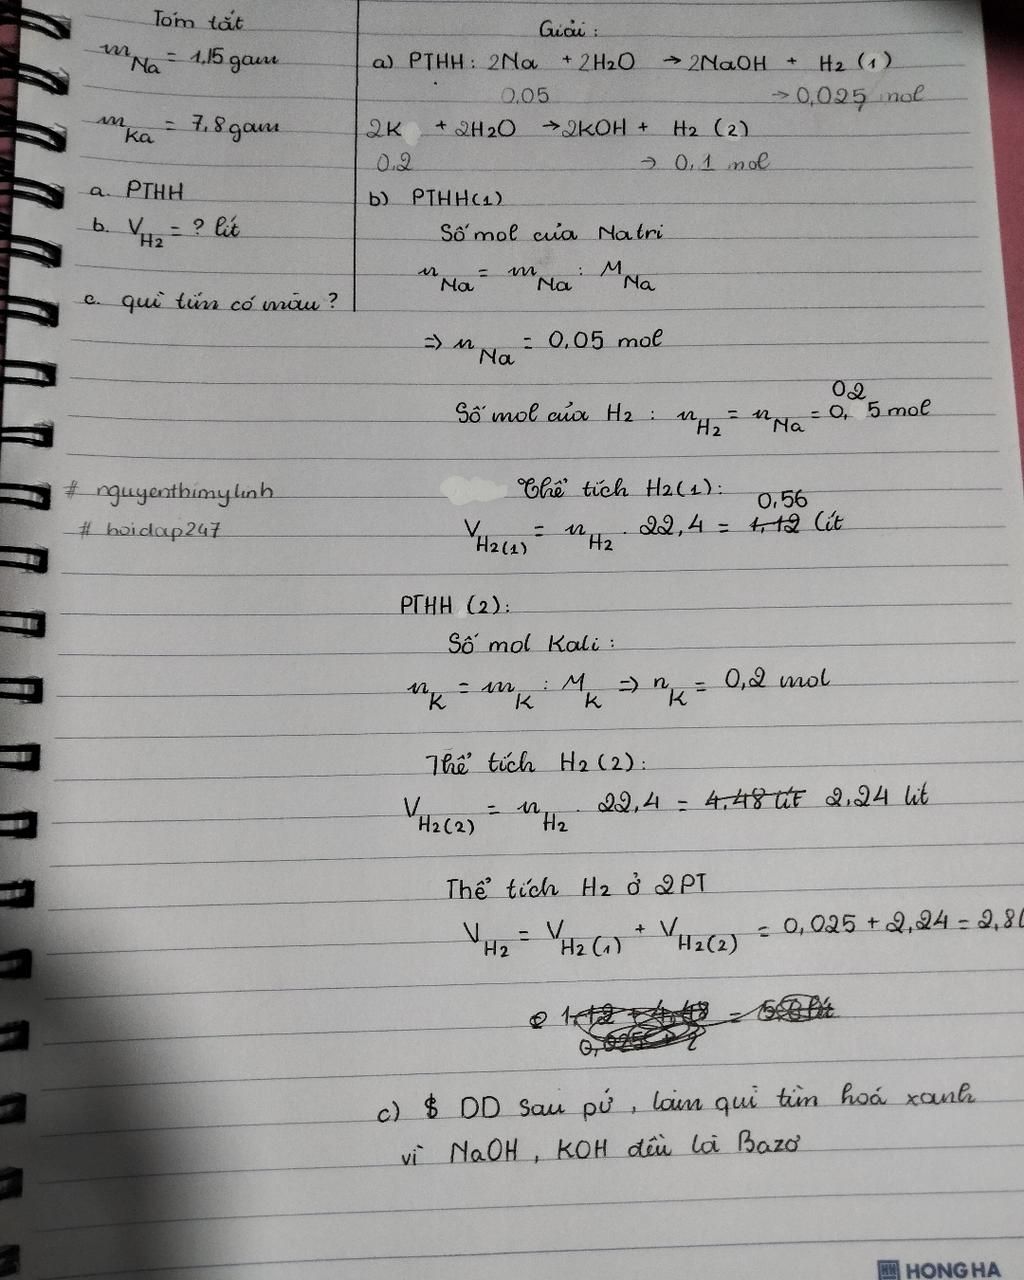 Tóm tắt
mNa = 1,15 gam
mKa = 7,8 gam
a. PTHH
b. VH2 = ? lít
c. quì tím có màu ?
Giải :
a) PTHH : 2Na + 2H2O → 2NaOH + H2 (1)
0,05 → 0,025 mol
2K + 2H2O → 2KOH + H2 (2)
0,2 → 0,1 mol
b) PTHH(1)
Số mol của Natri
nNa = mNa : MNa
⇒ nNa = 0,05 mol
02
Số mol của H2 : nH2 = nNa = 0, 5 mol
# nguyenthimylinh
# hoidap247
Thể tích H2(1):
0,56
VH2(1) = nH2 . 22,4 = 1,12 lít
PTHH (2):
Số mol Kali :
nK = mK : MK ⇒ nK = 0,2 mol
Thể tích H2(2):
VH2(2) = nH2 . 22,4 = 4,48 lít 2,24 lít
Thể tích H2 ở 2PT
VH2 = VH2(1) + VH2(2) = 0,025 + 2,24 = 2,8
1,12 + 4,48 =
0,025 + 2
c) $ DD sau pứ , làm quì tím hoá xanh
vì NaOH , KOH đều là Bazơ
HONG HA